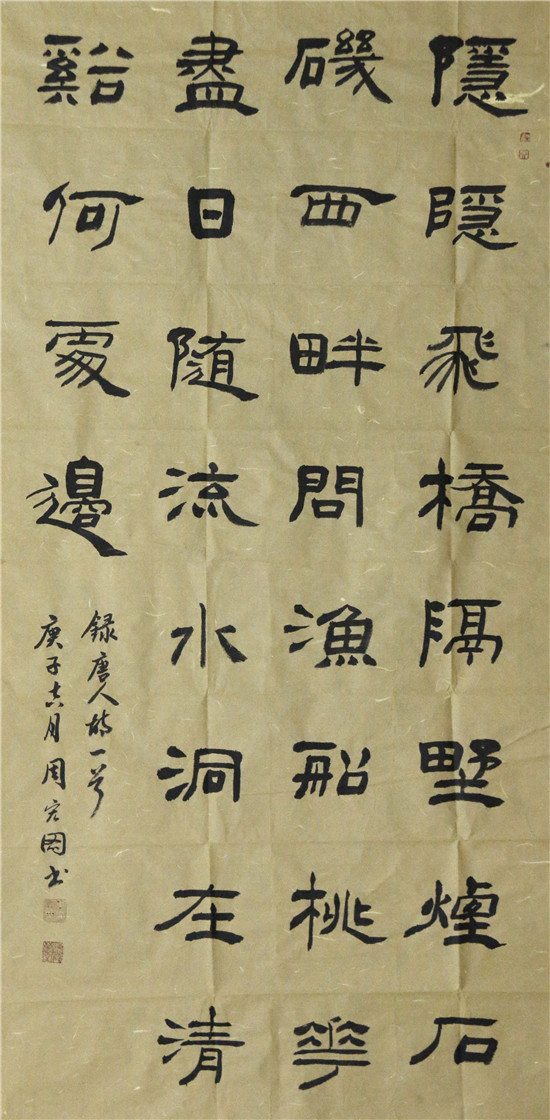 隱隱飛橋隔野煙石
磯西畔問漁船桃花
盡日隨流水洞在清
谿何處邊
錄唐人詩一首
庚子六月周宏國書